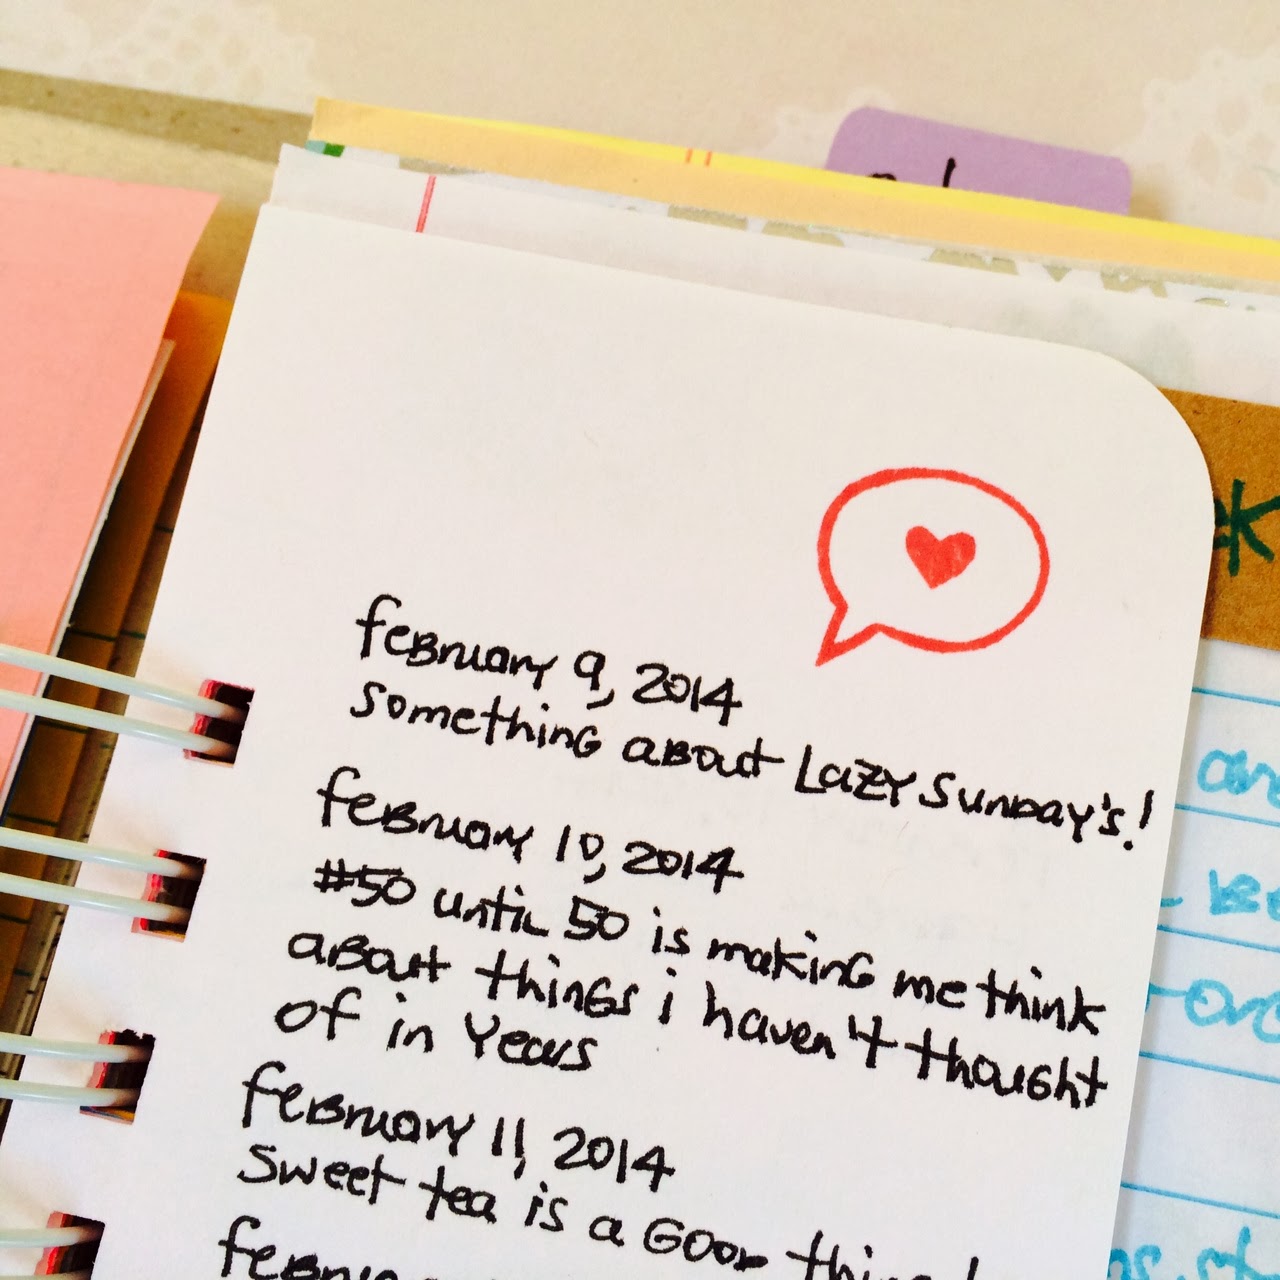 February 9, 2014
something about Lazy Sunday's!
February 10, 2014
#50 until 50 is making me think
about things i haven't thought
of in years
February 11, 2014
Sweet tea is a Good thing!